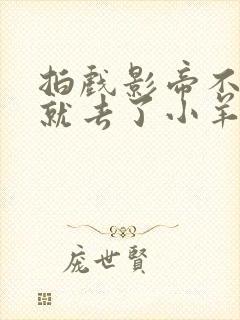 拍戏影帝不
就去了小羊
庞世賢